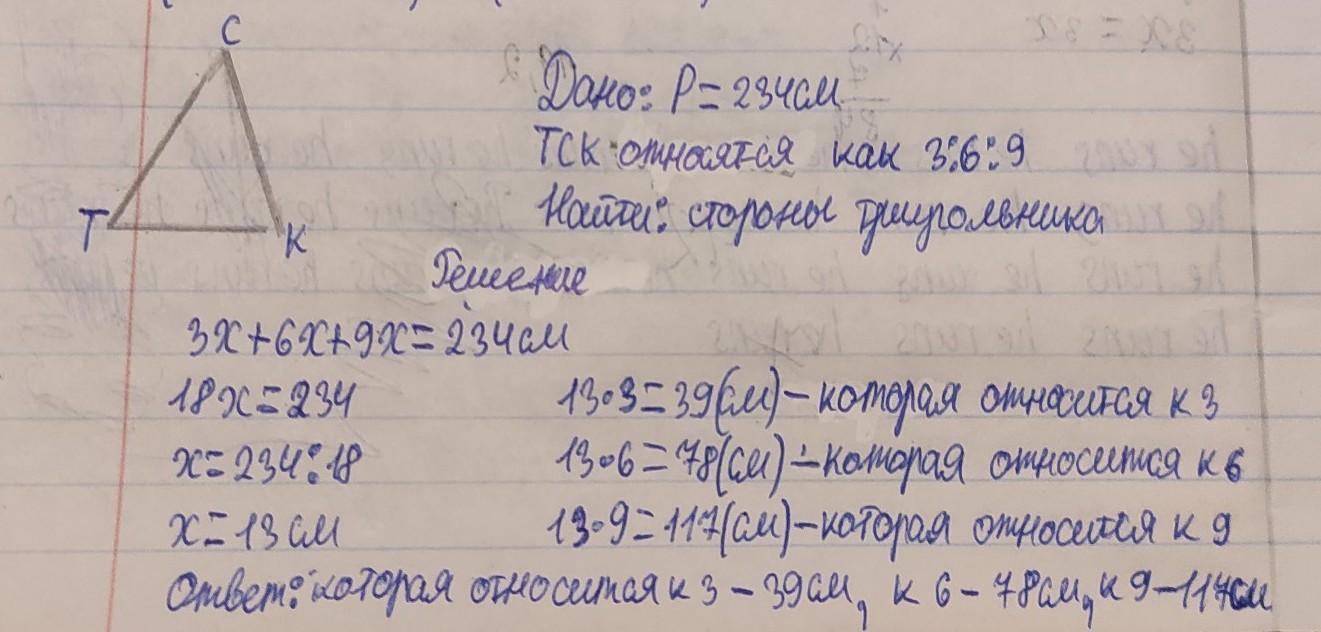 C
Дано: P = 234см
TCK относятся как 3:6:9
T
K
Найти: стороны триугольника
Решение
3x+6x+9x=234см
18x=234
13·3=39(см)–которая относится к 3
x=234:18
13·6=78(см)–которая относится к 6
x=13см
13·9=117(см)–которая относится к 9
Ответ: которая относится к 3 – 39см, к 6 – 78см, к 9 – 117см